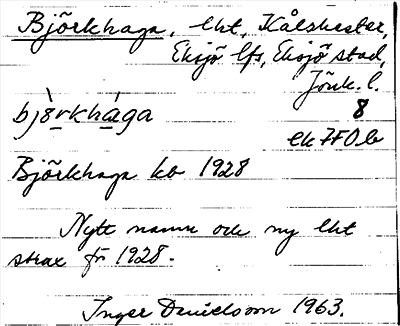 Björkhaga, lht, Kålshester,
Eksjö lfs, Eksjö stad,
Jönk. l.
bjè̱rkhá̱ga 8
ek 7F0b
Björkhaga kb 1928
Nytt namn och ny lht
strax fr 1928.
Inger Danielsson 1963.